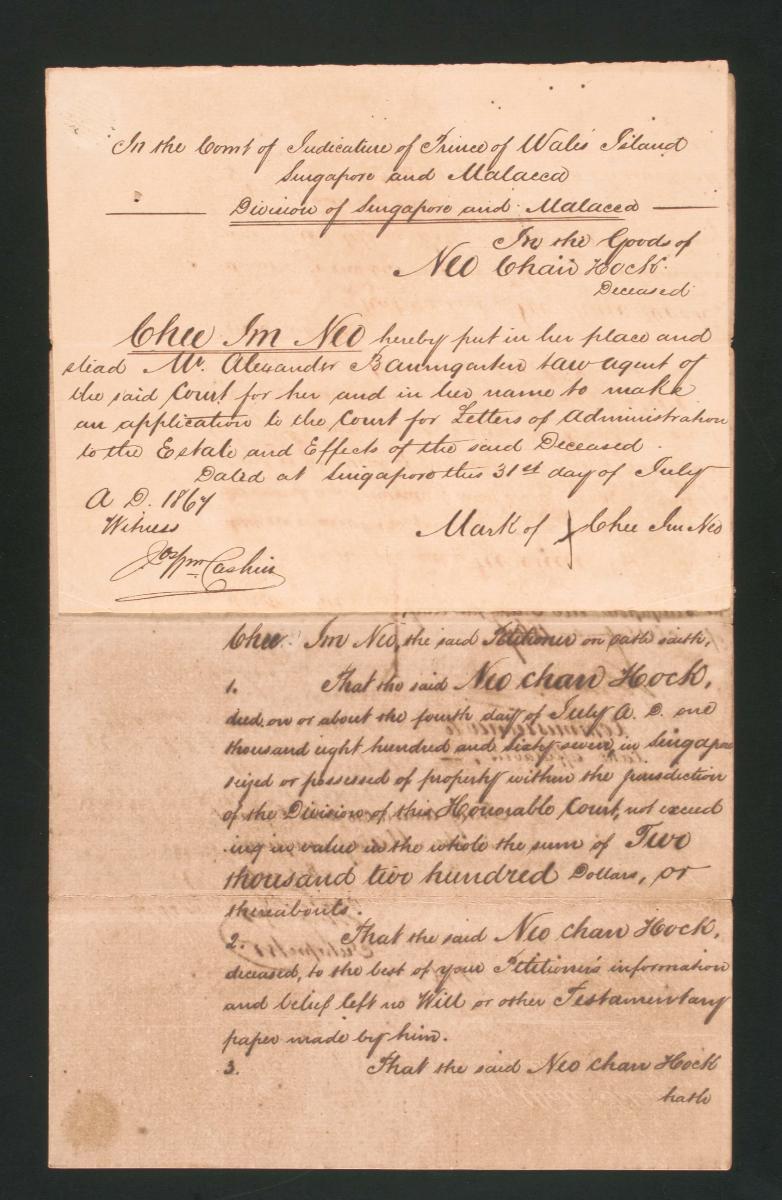 In the Court of Judicature of Prince of Wales Island
Singapore and Malacca
Division of Singapore and Malacca
In the Goods of
Neo Chan Hock
Deceased
Chee Im Neo hereby put in her place and
stead Mr. Alexander Baumgarten Law agent of
the said Court for her and in her name to make
an application to the Court for Letters of Administration
to the Estate and Effects of the said Deceased.
Dated at Singapore this 31st day of July
A D. 1867
Witness
Mark of X Chee Im Neo
Cashin
Chee Im Neo, the said Petitioner on oath saith,
1. That the said Neo Chan Hock,
died on or about the fourth day of July A. D. one
thousand eight hundred and sixty seven, in Singapore
seized or possessed of property within the jurisdiction
of the Division of this Honorable Court, not exceed
ing in value in the whole the sum of Two
thousand two hundred Dollars, or
thereabouts.
2. That the said Neo Chan Hock,
deceased, to the best of your Petitioner's information
and belief left no Will or other Testamentary
paper made by him.
3. That the said Neo Chan Hock
hath